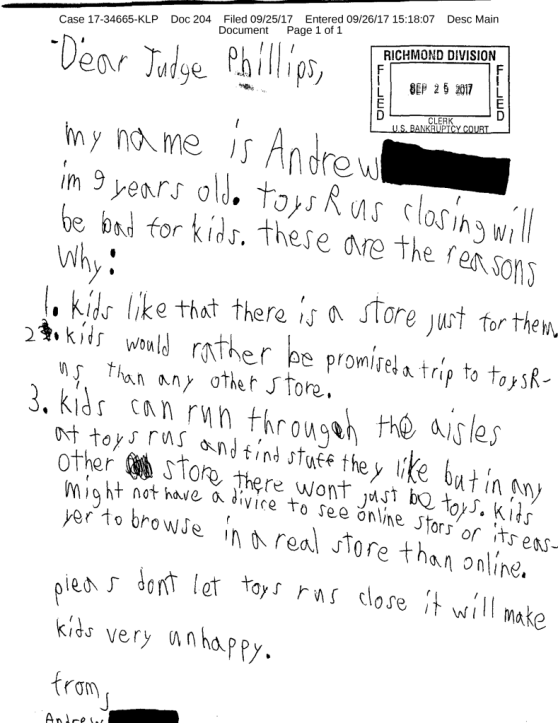 Case 17-34665-KLP Doc 204 Filed 09/25/17 Entered 09/26/17 15:18:07 Desc Main
Document Page 1 of 1
Dear Judge Phillips,
RICHMOND DIVISION
FILED
SEP 25 2017
FILED
CLERK
U.S. BANKRUPTCY COURT
my name is Andrew
im 9 years old. toys R us closing will
be bad for kids. these are the reasons
Why:
1. kids like that there is a store just for them
2. kids would rather be promised a trip to toysR-
us than any other store.
3. kids can run througeh the aisles
at toys rus and find stuff they like but in any
Other store there wont just be toys. kids
might not have a divice to see online stors or its eas-
yer to browse in a real store than online.
pleas dont let toys rus close it will make
kids very unhappy.
from,
Andrew